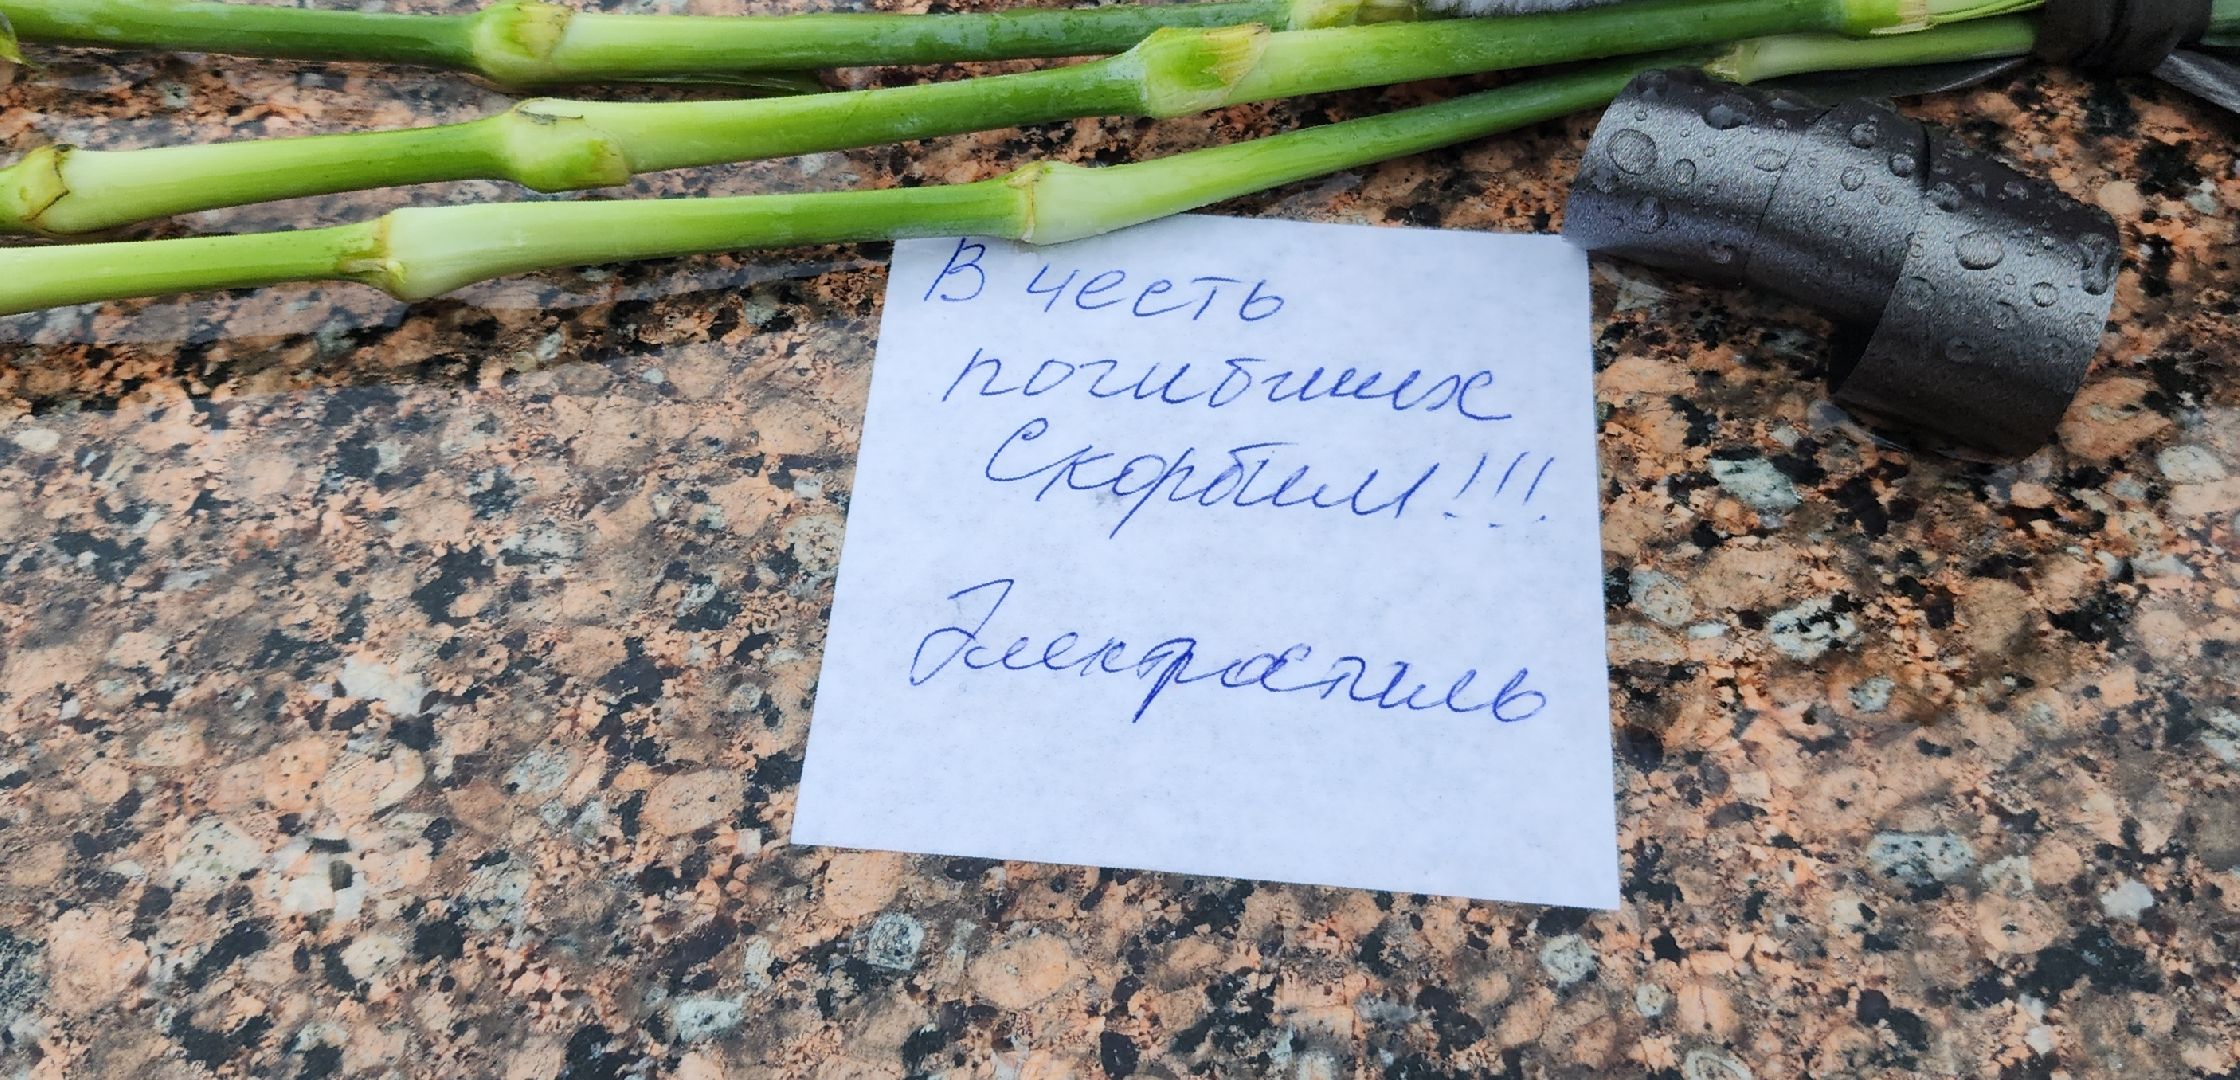 В честь
погибших
Скорбим!!!
Электростиль